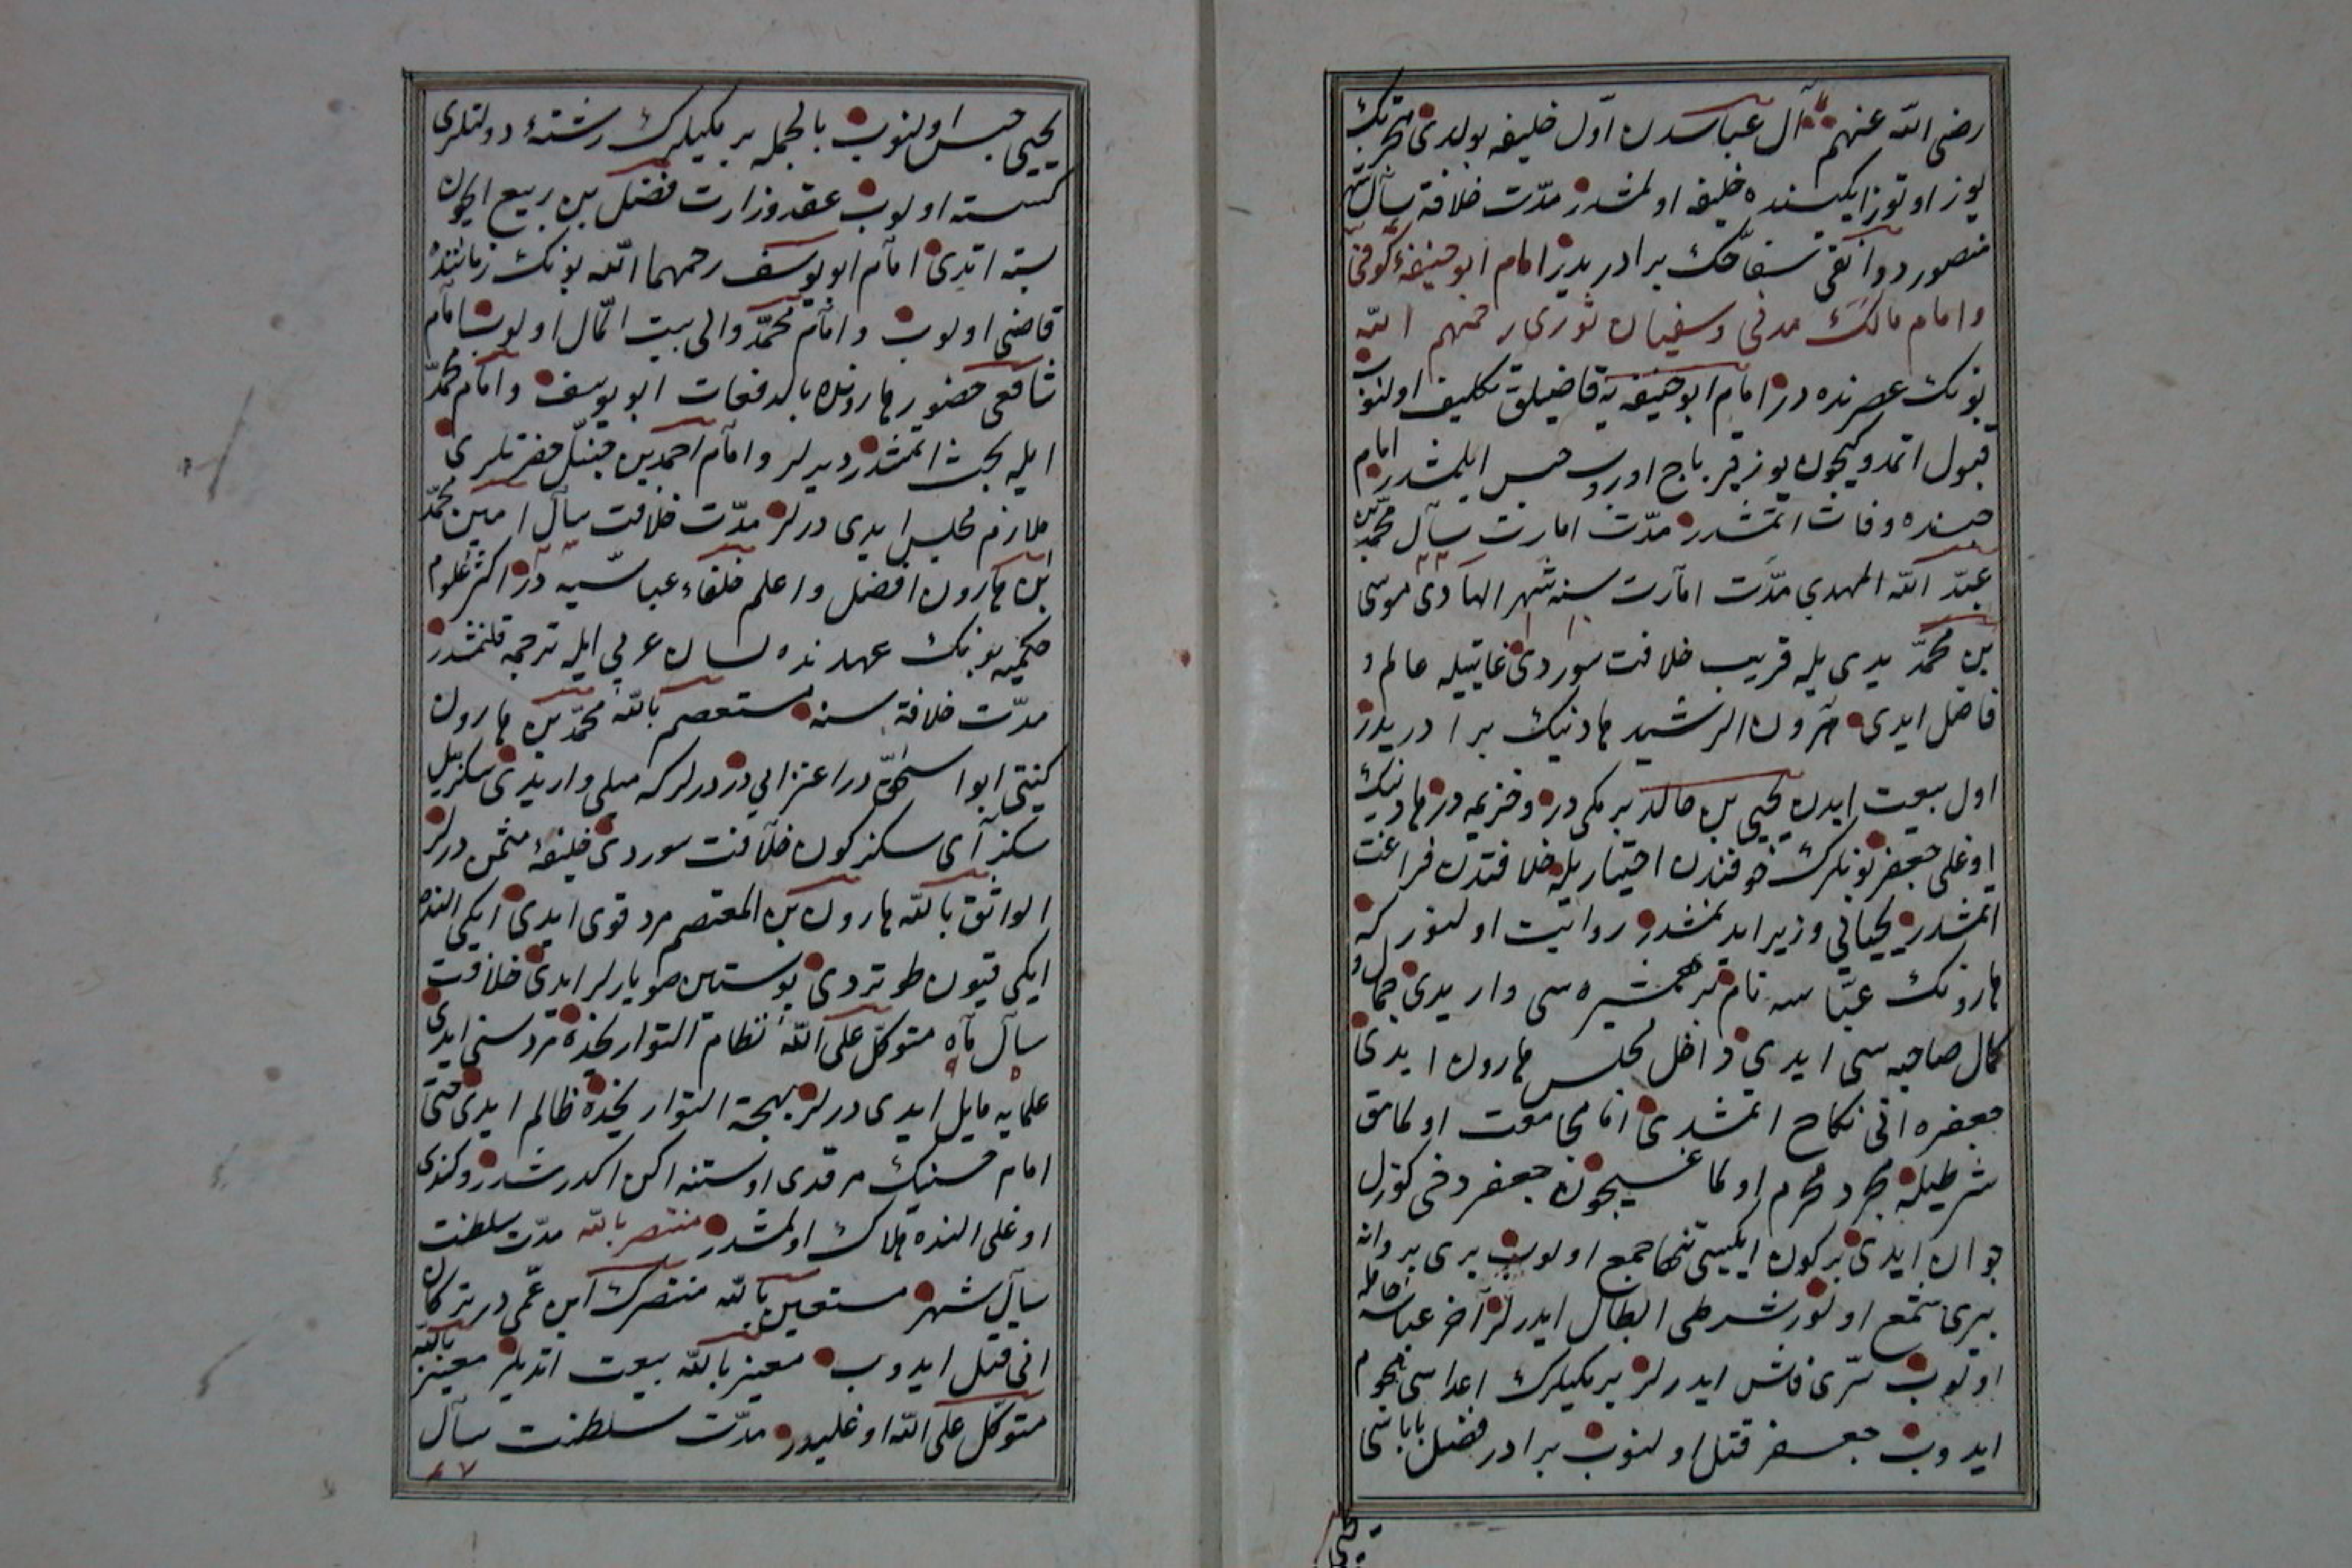 رضی الله عنهم آل عباسدن اوّل خلیفه بولدی هجرتك
یوز اوتوز ایکیسنده خلیفه اولمشدر مدّت خلافة سال شهر
منصور دوانقی سفّاحك برادریدر امام ابو حنیفهٔ کوفی
وامام مالك مدنی وسفیان ثوری رحمهم الله
بونك عصرنده در امام ابو حنیفه یه قاضیلق تکلیف اولنوب
قبول اتمدوکیچون یوز قرباج اوروب حبس ایلمشدر امام
حبسنده وفات اتمشدر مدّت امارت سال محمّد بن
عبد الله المهدی مدّت امارت سنه شهر الهادی موسی
بن محمّد یدی یله قریب خلافت سوردی غایتیله عالم و
فاضل ایدی هرون الرشید هادینك برادریدر
اول بیعت ایدن یحیی بن خالد برمکی در وخزیمه در هادینك
اوغلی جعفر بونلرك خوفندن اختیاریله خلافتدن فراغت
اتمشدر یحیایی وزیر ایدنمشدر روایت اولنور که
هارونك عبّاسه نام بر همشیره سی وار یدی جمال و
کمال صاحبه سی ایدی داخل مجلس هارون ایدی
جعفره انی نکاح اتمشدی امّا مجامعت اولمامق
شرطیله مجرد محرم اولماغیچون جعفر دخی کوزل
جوان ایدی برکون ایکیسی تنها جمع اولوب بری پروانه
بری شمع اولور شرطی ابطال ایدرلر آخر عباسه حامله
اولوب سرّی فاش ایدرلر برمکیلرك اعداسی هجوم
ایدوب جعفر قتل اولنوب برادر فضل باباسی
یحیی
یحیی حبس اولنوب بالجمله برمکیلرك رشتهٔ دولتلری
کسسته اولوب عقد وزارت فضل بن ربیع ایچون
بسته اتدی امام ابو یوسف رحمهما الله بونك زماننده
قاضی اولوب وامام محمّد والی بیت المال اولوب امام
شافعی حضور هارونده بالدفعات ابو یوسف وامام محمّد
ایله بحث اتمشدر دیرلر وامام احمد بن حنبل حضرتلری
ملازم مجلس ایدی درلر مدّت خلافت سال امین محمّد
ابن هارون افضل واعلم خلفاء عباسیه در اکثر علوم
حکمیه بونك عهدنده لسان عربی ایله ترجمه قلنمشدر
مدّت خلافة سنه مستعصم بالله محمّد بن هارون
کنیتی ابو اسحق در اعتزالی در درلر که میلی وار یدی سکز ییل
سکز آی سکز کون خلافت سوردی خلیفهٔ مثمن درلر
الواثق بالله هارون بن المعتصم مرد قوی ایدی ایکی النده
ایکی قیون طوتردی پوستین صویارلر ایدی خلافت
سال ماه متوکل علی الله نظام التواریخده مرد سنی ایدی
٥ ٩
علمایه مایل ایدی درلر بهجة التواریخده ظالم ایدی حتی
امام حسینك مرقدی اوستنه اکن اکدرشدر وکندی
اوغلی النده هلاك اولمشدر منتصر بالله مدّت سلطنت
سال شهر مستعین بالله منتصرك ابن عمّی در ترکان
انی قتل ایدوب معیز بالله بیعت اتدیلر معیز بالله
متوکل علی الله اوغلیدر مدّت سلطنت سال